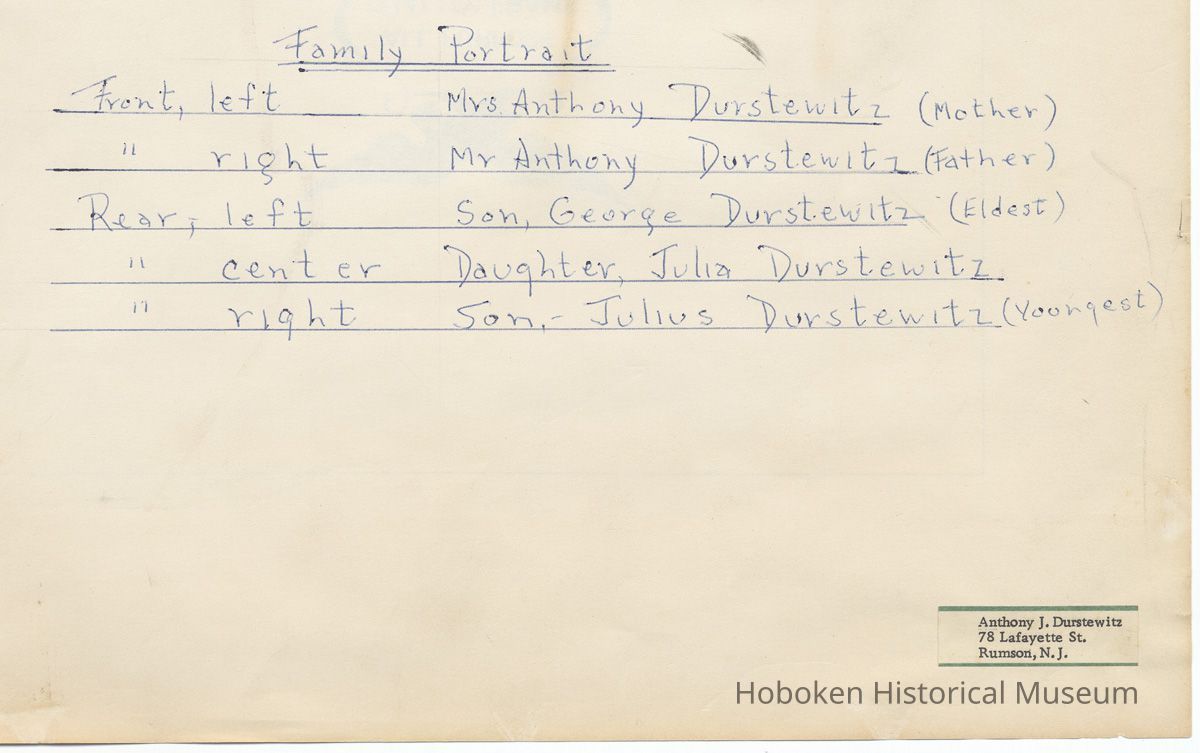 Family Portrait
Front, left Mrs. Anthony Durstewitz (Mother)
" right Mr Anthony Durstewitz (Father)
Rear, left Son, George Durstewitz (Eldest)
" center Daughter, Julia Durstewitz
" right Son,- Julius Durstewitz (Youngest)
Anthony J. Durstewitz
78 Lafayette St.
Rumson, N. J.
Hoboken Historical Museum